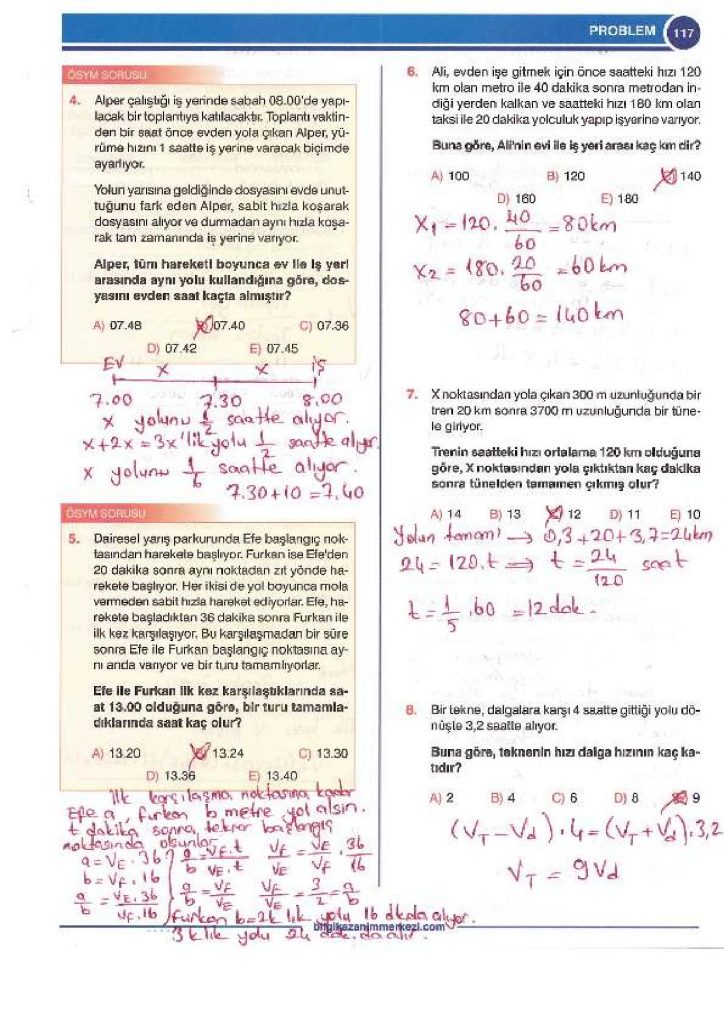 PROBLEM 117
ÖSYM SORUSU
4. Alper çalıştığı iş yerinde sabah 08.00'de yapı-
lacak bir toplantıya katılacaktır. Toplantı vaktin-
den bir saat önce evden yola çıkan Alper, yü-
rüme hızını 1 saatte iş yerine varacak biçimde
ayarlıyor.
Yolun yarısına geldiğinde dosyasını evde unut-
tuğunu fark eden Alper, sabit hızla koşarak
dosyasını alıyor ve durmadan aynı hızla koşa-
rak tam zamanında iş yerine varıyor.
Alper, tüm hareketi boyunca ev ile iş yeri
arasında aynı yolu kullandığına göre, dos-
yasını evden saat kaçta almıştır?
A) 07.48 B) 07.40 C) 07.36
D) 07.42 E) 07.45
EV x x iş
7.00 7.30 8.00
x yolunu 1/2 saatte alıyor.
x+2x=3x'lik yolu 1/2 saatte alıyor.
x yolunu 1/6 saatte alıyor.
7.30+10=7.40
ÖSYM SORUSU
5. Dairesel yarış parkurunda Efe başlangıç nok-
tasından harekete başlıyor. Furkan ise Efe'den
20 dakika sonra aynı noktadan zıt yönde ha-
rekete başlıyor. Her ikisi de yol boyunca mola
vermeden sabit hızla hareket ediyorlar. Efe, ha-
rekete başladıktan 36 dakika sonra Furkan ile
ilk kez karşılaşıyor. Bu karşılaşmadan bir süre
sonra Efe ile Furkan başlangıç noktasına ay-
nı anda varıyor ve bir turu tamamlıyorlar.
Efe ile Furkan ilk kez karşılaştıklarında sa-
at 13.00 olduğuna göre, bir turu tamamla-
dıklarında saat kaç olur?
A) 13.20 B) 13.24 C) 13.30
D) 13.36 E) 13.40
ilk karşılaşma noktasına kadar
Efe a, furkan b metre yol alsın.
t dakika sonra, tekrar başlangıç
noktasında olsunlar.
a=VE.36
b=VF.16
a/b = VE.36/VF.16
a/b = VF.t/VE.t
a/b = VF/VE
VF/VE = VE/VF . 36/16
VF/VE = 3/2 = a/b
furkan b=2k lık yolu 16 dkda alıyor.
3k lık yolu 24 dak.da alır.
6. Ali, evden işe gitmek için önce saatteki hızı 120
km olan metro ile 40 dakika sonra metrodan in-
diği yerden kalkan ve saatteki hızı 180 km olan
taksi ile 20 dakika yolculuk yapıp işyerine varıyor.
Buna göre, Ali'nin evi ile iş yeri arası kaç km dir?
A) 100 B) 120 C) 140
D) 160 E) 180
X1 = 120. 40/60 = 80km
X2 = 180. 20/60 = 60km
80+60=140km
7. X noktasından yola çıkan 300 m uzunluğunda bir
tren 20 km sonra 3700 m uzunluğunda bir tüne-
le giriyor.
Trenin saatteki hızı ortalama 120 km olduğuna
göre, X noktasından yola çıktıktan kaç dakika
sonra tünelden tamamen çıkmış olur?
A) 14 B) 13 C) 12 D) 11 E) 10
Yolun tamamı → 0,3+20+3,7=24km
24=120.t ⇒ t = 24/120 saat
t = 1/5 .60 = 12 dak.
8. Bir tekne, dalgalara karşı 4 saatte gittiği yolu dö-
nüşte 3,2 saatte alıyor.
Buna göre, teknenin hızı dalga hızının kaç ka-
tıdır?
A) 2 B) 4 C) 6 D) 8 E) 9
(VT-Vd).4=(VT+Vd).3,2
VT = 9Vd
bilgikazanimmerkezi.com